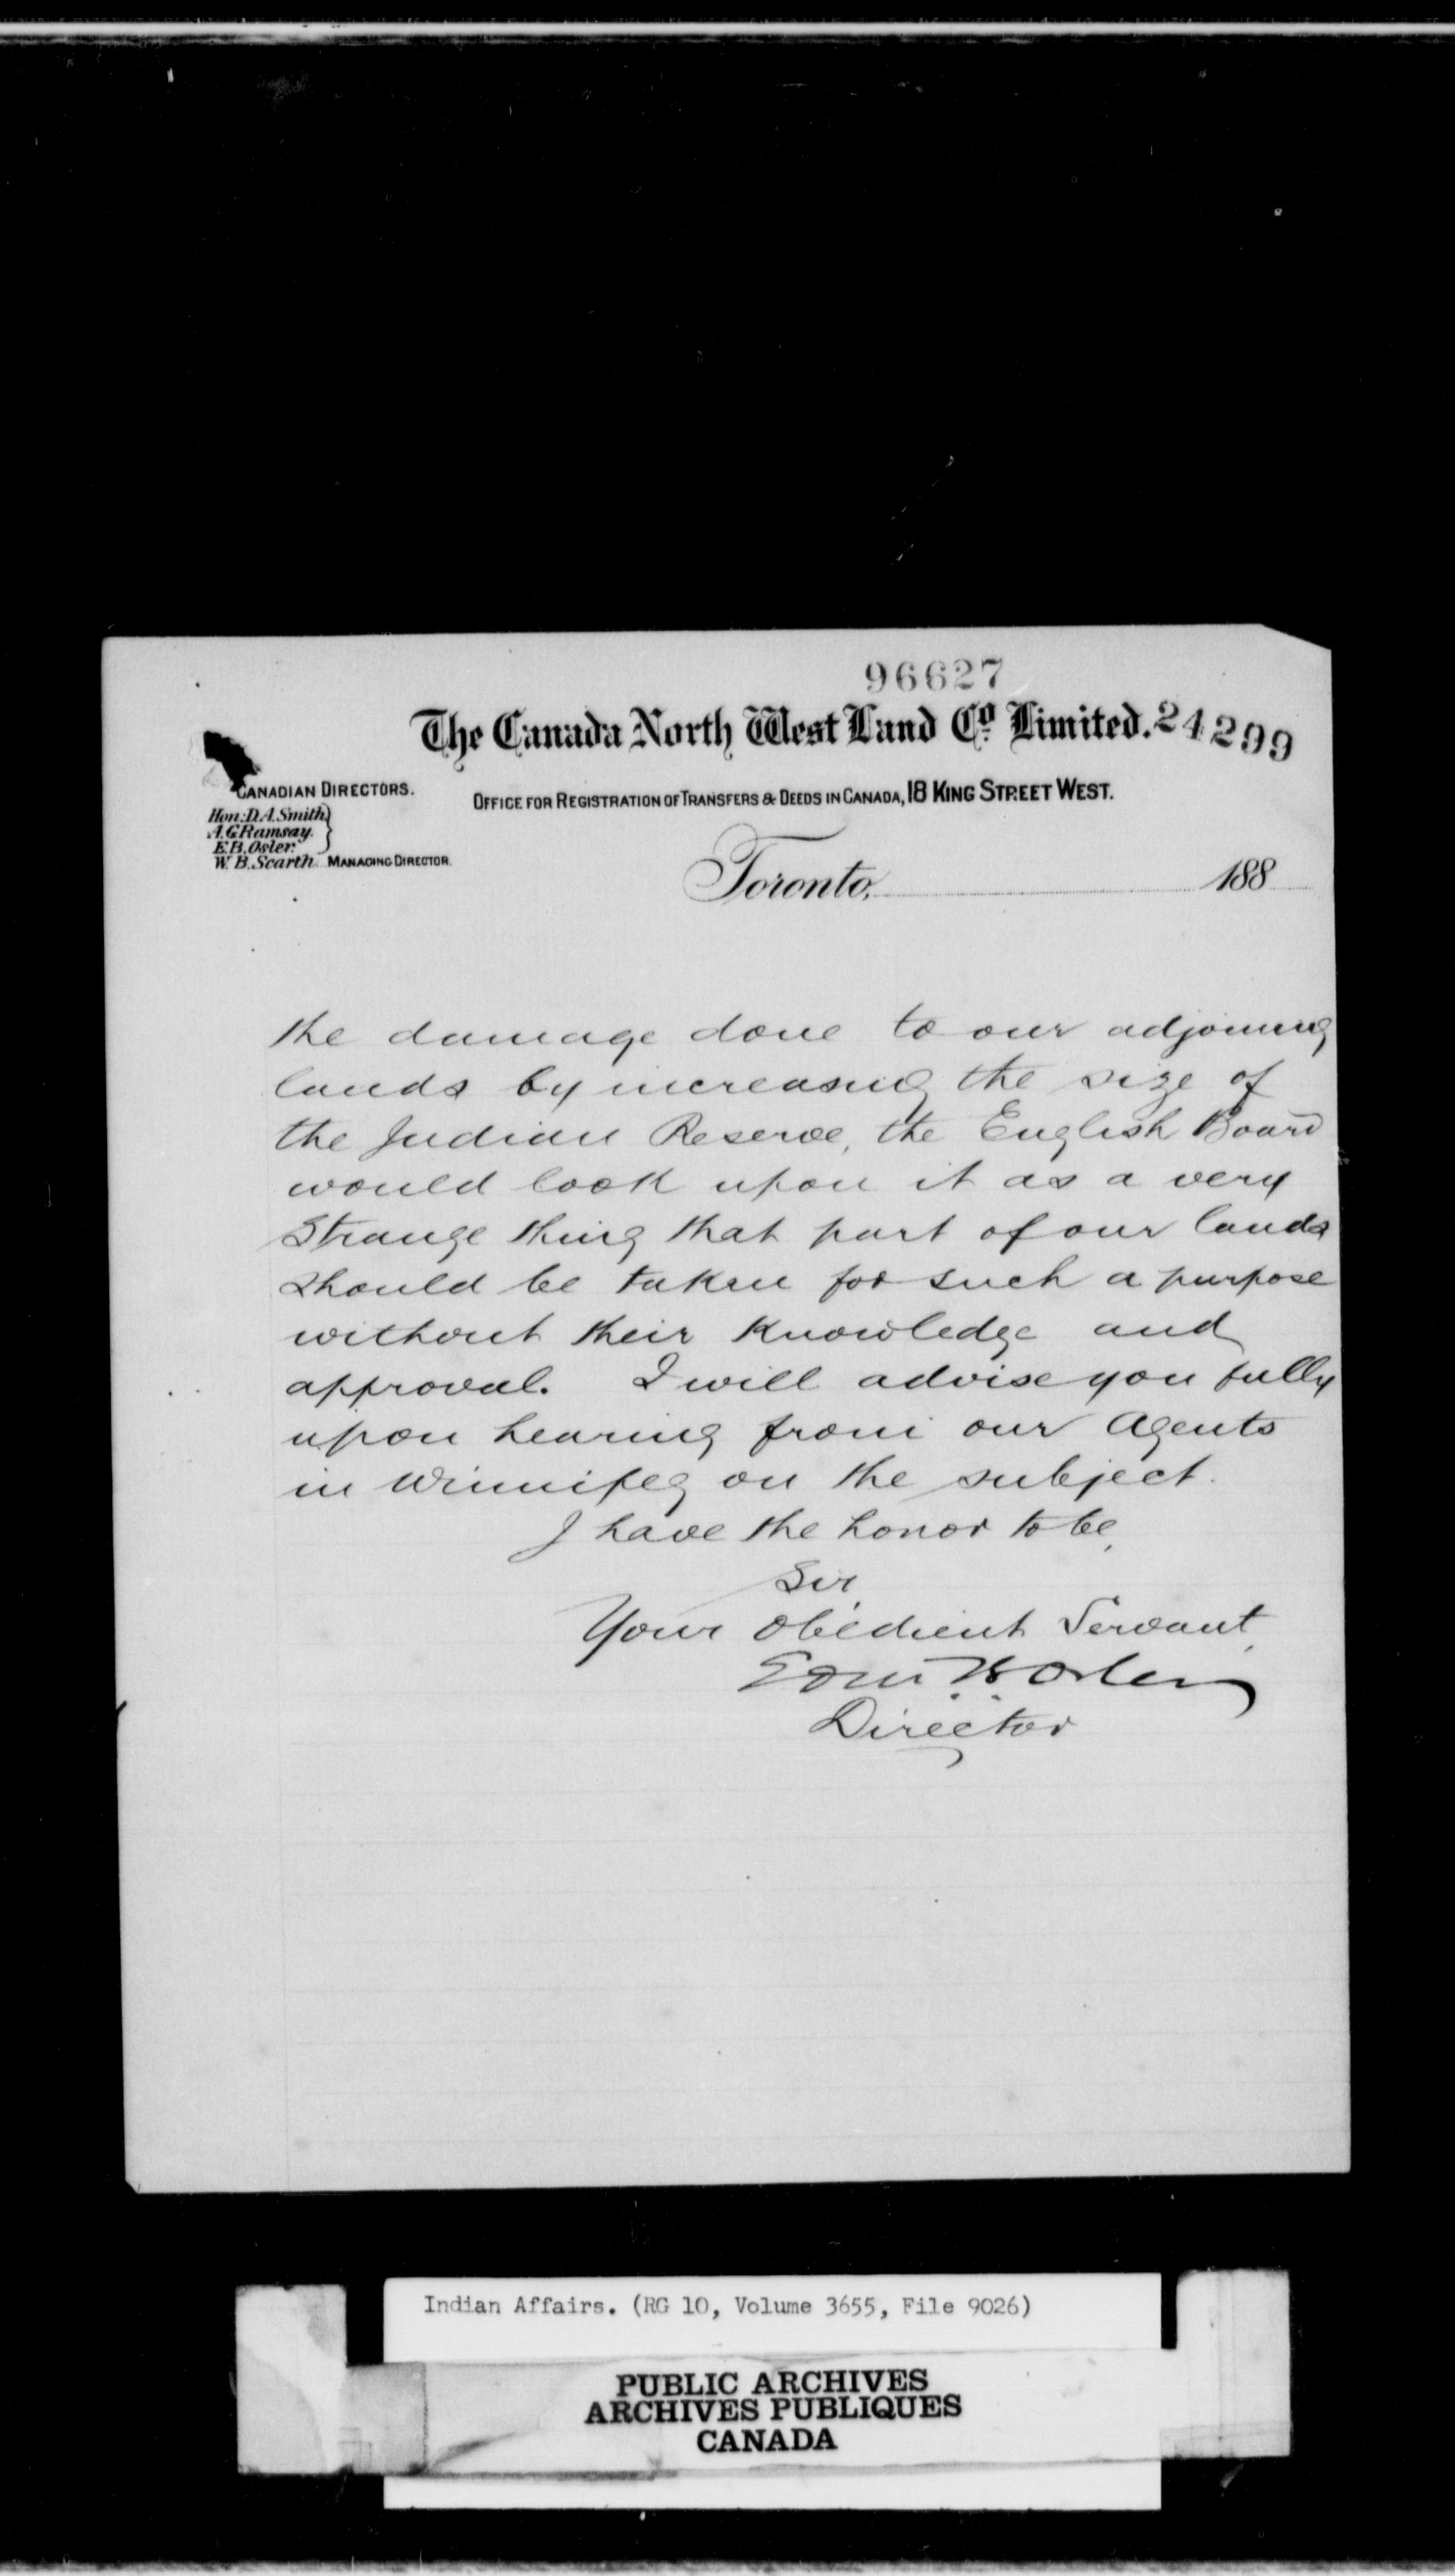 96627
The Canada North West Land Co. Limited. 24299
CANADIAN DIRECTORS.
Hon. D.A. Smith
A.G. Ramsay.
E.B. Osler.
W.B. Scarth. MANAGING DIRECTOR.
OFFICE FOR REGISTRATION OF TRANSFERS & DEEDS IN CANADA, 18 KING STREET WEST.
Toronto, 188
the damage done to our adjoining
lands by increasing the size of
the Indian Reserve, the English Board
would look upon it as a very
strange thing that part of our lands
should be taken for such a purpose
without their knowledge and
approval. I will advise you fully
upon hearing from our Agents
in Winnipeg on the subject.
I have the honor to be,
Sir,
Your obedient Servant,
Edm B Osler
Director
Indian Affairs. (RG 10, Volume 3655, File 9026)
PUBLIC ARCHIVES
ARCHIVES PUBLIQUES
CANADA